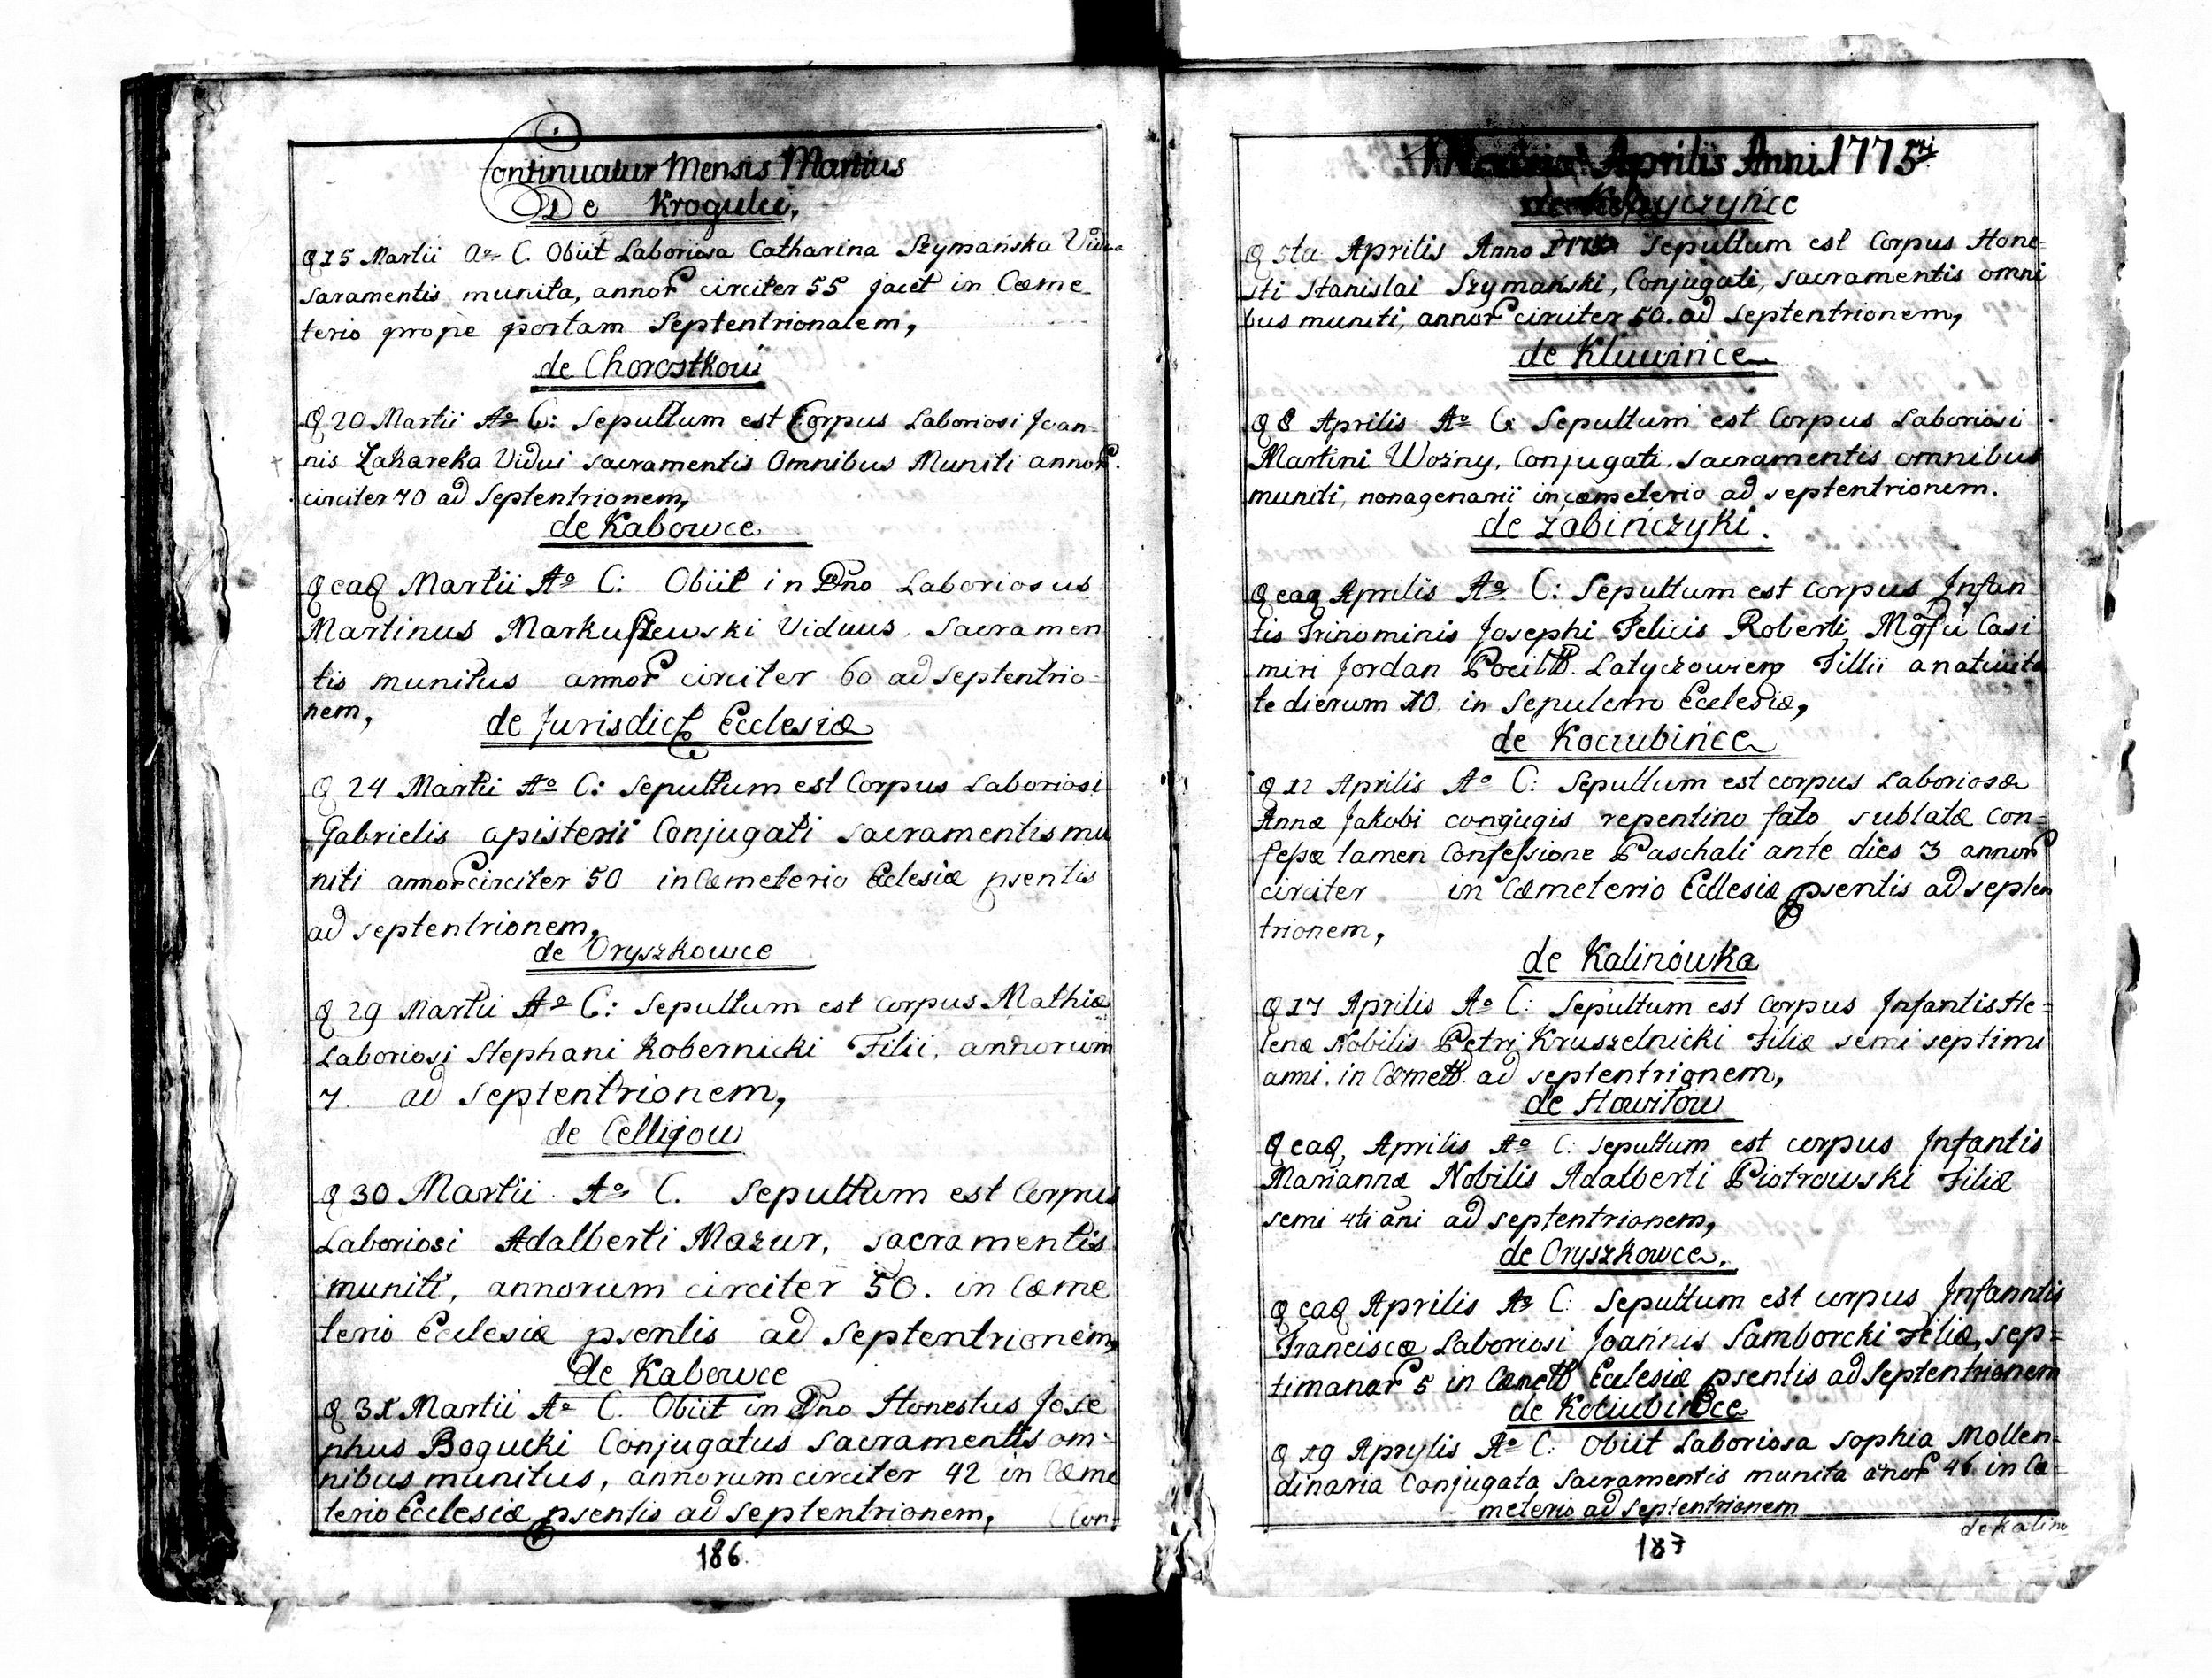 Continuatur Mensis Martius
De Krogulci,
Q 15 Martii Ao C. Obiit Laboriosa Catharina Szymańska Vidua
Saramentis munita, annor circiter 55 jacet in Cæme
terio prope portam Septentrionalem,
de Chorostkow
Q 20 Martii Ao C: Sepultum est Corpus Laboriosi Joan-
nis Zakareka Vidui sacramentis Omnibus Muniti annor.
circiter 70 ad Septentrionem,
de Kabowce
Q eaq Martii Ao C: Obiit in Dno Laboriosus
Martinus Markuszewski Viduus, Sacramen
tis munitus annor circiter 60 ad septentrio-
nem,
de Jurisdict Ecclesiæ
Q 24 Martii Ao C: Sepultum est Corpus Laboriosi
Gabrielis apisterii Conjugati sacramentis mu
niti annor circiter 50 in Cæmeterio Eclesiæ psentis
ad septentrionem,
de Oryszkowce
Q 29 Martii Ao C: Sepultum est corpus Mathiæ
Laboriosi Stephani Kobernicki Filii, annorum
7. ad Septentrionem,
de Celligow
Q 30 Martii Ao C. Sepultum est Corpus
Laboriosi Adalberti Mazur, sacramentis
muniti, annorum circiter 50. in Cæme
terio Ecclesiæ psentis ad Septentrionem,
de Kabowce
Q 31 Martii Ao C. Obiit in Dno Honestus Jose
phus Bogucki Conjugatus sacramentis om-
nibus munitus, annorum circiter 42 in Cæme
terio Ecclesiæ psentis ad septentrionem, (Con-
186
Aprilis Anni 1775
Q 5ta Aprilis Anno Sepultum est Corpus Hone-
sti Stanislai Szymański, Conjugati, sacramentis omni
bus muniti, annor circiter 50. ad Septentrionem,
de Kluwińce
Q 8 Aprilis Ao C: Sepultum est Corpus Laboriosi
Martini Wozny, Conjugati, sacramentis omnibus
muniti, nonagenarii in cæmeterio ad septentrionem.
de Zabińczyki.
Q eaq Aprilis Ao C: Sepultum est corpus Infan
tis Trinominis Josephi Felicis Roberti, Mgfci Casi
miri Jordan Latyczowien Fillii a natiuita
te dierum 10. in Sepulcrro Ecclesiæ,
de Kociubińce
Q 12 Aprilis Ao C: Sepultum est corpus Laboriosæ
Annæ Jakobi congugis repentino fato sublatæ con-
fessæ tamen Confessione Paschali ante dies 3 annor
circiter in Cæmeterio Ecclesiæ psentis ad septen
trionem,
de Kalinówka
Q 17 Aprilis Ao C: Sepultum est Corpus Infantis He-
lenæ Nobilis Petri Kruszelnicki Filiæ semi septimi
anni. in Cæmett. ad septentrionem,
de Howitow
Q eaq, Aprilis Ao C: sepultum est corpus Infantis
Mariannæ Nobilis Adalberti Piotrowski Filiæ
semi 4ti ani ad septentrionem,
de Oryszkowce.
Q eaq Aprilis Ao C: Sepultum est corpus Infanntis
Franciscæ Laboriosi Joannis Samborcki Filiæ, sep-
timanar 5 in Cæmett Ecclesiæ psentis ad Septentrionem
de Kociubińce
Q 19 Aprylis Ao C: Obiit Laboriosa Sophia Mollen-
dinaria Conjugata sacramentis munita añor 46 in Cæ-
meterio ad Septentrionem
de Kalino
187